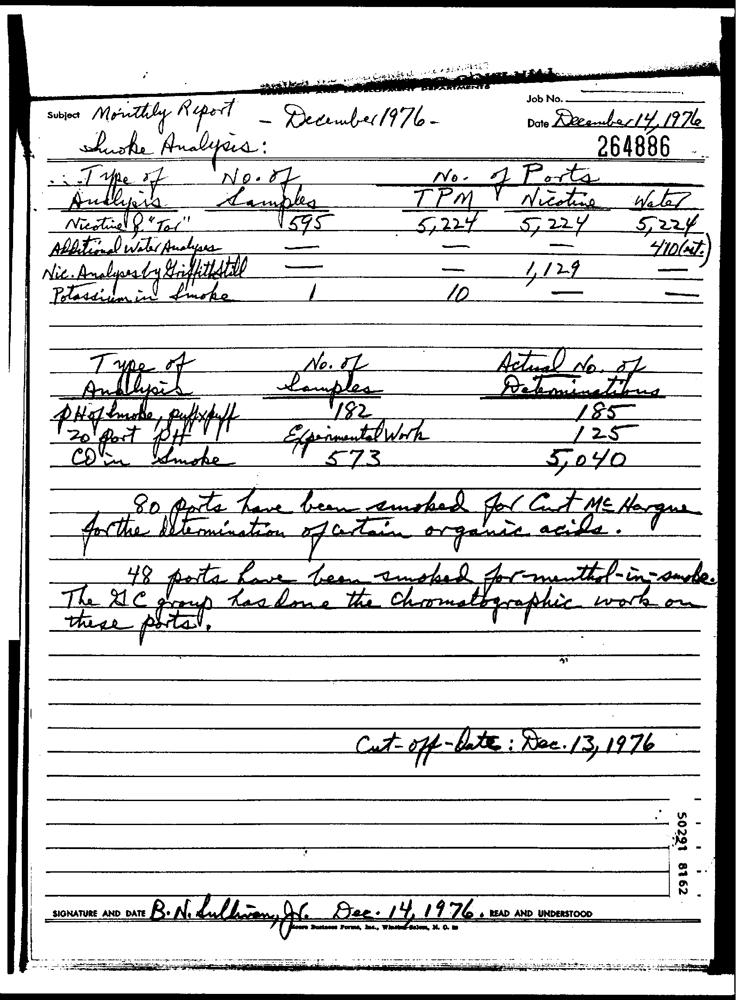 RESEARCH AND DEVELOPMENT DEPARTMENTS
Job No.
Subject Monthly Report - December 1976 -
Date December 14, 1976
Smoke Analysis:
264886
Type of No. of No. of Ports
Analysis Samples TPM Nicotine Water
Nicotine & "Tar" 595 5,224 5,224 5,224
Additional Water Analyses — — — 410 (est.)
Nic. Analyses by Griffith Still — — 1,129 —
Potassium in Smoke 1 10 — —
Type of No. of Actual No. of
Analysis Samples Determinations
pH of Smoke, puff x puff 182 185
20 port pH Experimental Work 125
CO in Smoke 573 5,040
80 ports have been smoked for Curt McHargue
for the determination of certain organic acids.
48 ports have been smoked for menthol-in-smoke.
The GC group has done the chromatographic work on
these ports.
Cut-off-Date: Dec. 13, 1976
50291 8162
SIGNATURE AND DATE B. N. Sullivan, Jr. Dec. 14, 1976. READ AND UNDERSTOOD
Business Forms, Inc., Winston-Salem, N. C.